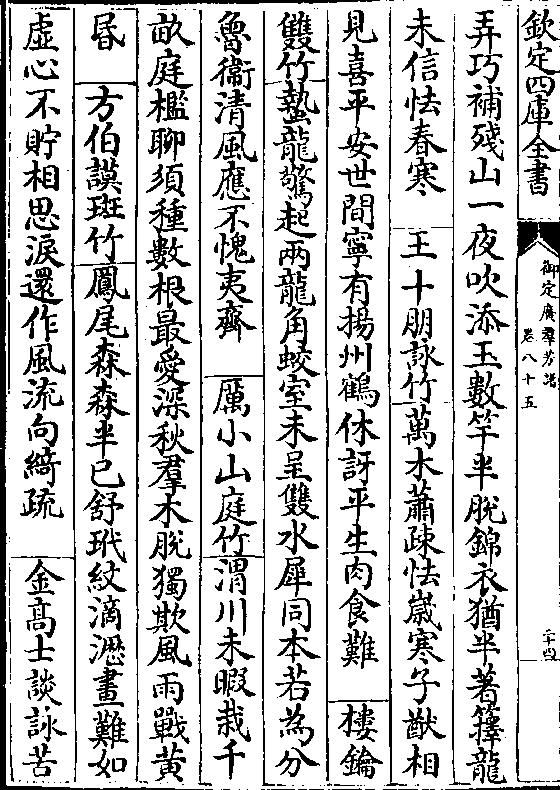 欽定四庫全書
御定廣羣芳譜
卷八十五
二十四
弄巧補殘山一夜吹添玉數竿半脫錦衣猶半著籜龍
未信怯春寒 王十朋詠竹萬木蕭疎怯歲寒子猷相
見喜平安世間寧有揚州鶴休訝平生肉食難 樓鑰
雙竹蟄龍驚起兩龍角蛟室未呈雙水犀同本若為分
魯衞清風應不愧夷齊 厲小山庭竹渭川未暇栽千
畝庭檻聊須種數根最愛深秋羣木脫獨欺風雨戰黃
昬 方伯謨斑竹鳳尾森森半已舒玳紋滴瀝畫難如
虚心不貯相思淚還作風流向綺疏 金髙士談詠苦